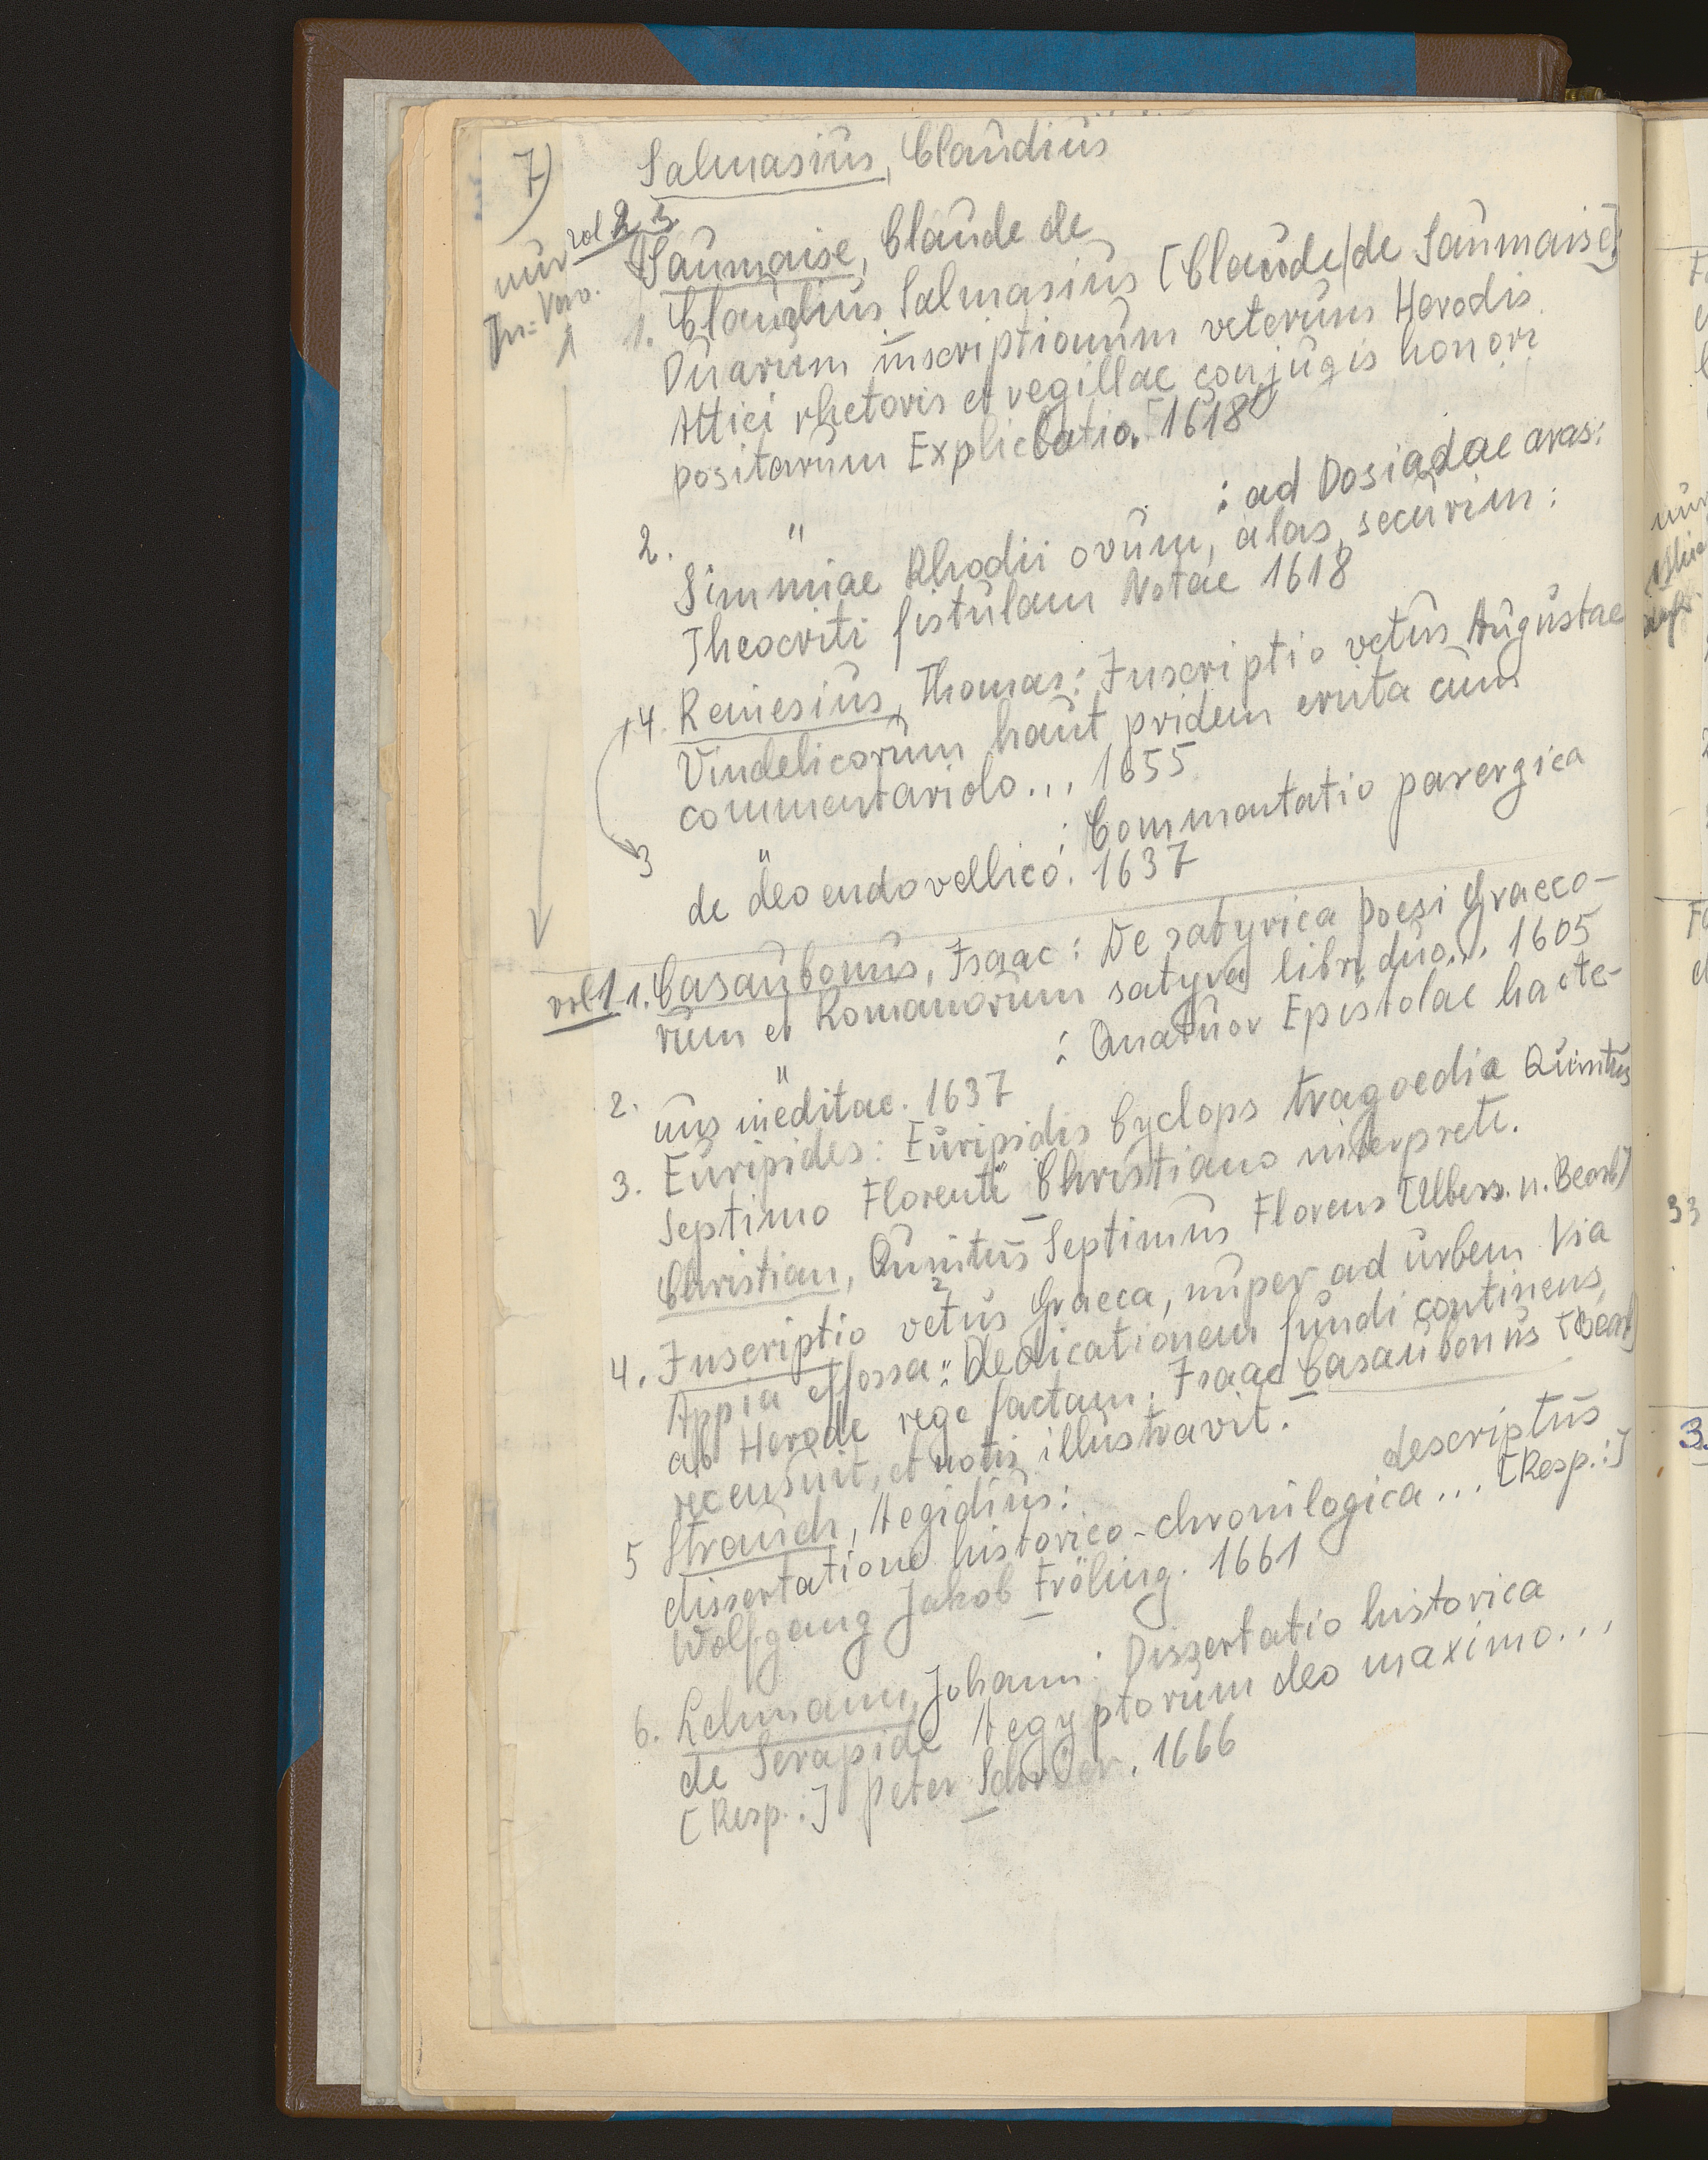 7)
Salmasius, Claudius
vol 2 3
Saumaise, Claude de
nur
1. Claudius Salmasius [Claude/de Saumaise]:
Duarum inscriptionum veterum Herodis
Attici rhetoris et regillae conjugis honori
positarum Explicatio. [1618]
2. " : ad Dosiadae aras:
Simmiae Rhodii ovum, alas, securim:
Theocriti fistulam Notae 1618
4. Reinesius, Thomas: Inscriptio vetus Augustae
Vindelicorum haut pridem eruta cum
commentariolo... 1655
3 " : Commentatio parergica
de deo endovellico. 1637
vol 1 1. Casaubonus, Isaac: De satyrica poesi Graeco-
rum et Romanorum satyra libri duo... 1605
2. " : Quatuor Epistolae hacte-
nus ineditae. 1637
3. Euripides: Euripidis Cyclops tragoedia Quintus
Septimo Florente Christiano interprete.
Christian, Quintus Septimus Florens [Übers. u. Bearb]
4. Inscriptio vetus Graeca, nuper ad urbem Via
Appia effossa: Dedicationem fundi continens,
ab Herode rege factam. Isaac Casaubonus [Bearb]
recensuit, et notis illustravit.
5 Strauch, Aegidius: descriptus
dissertatione historico-chronilogica... [Resp.:]
Wolfgang Jakob Fröling. 1661
6. Lehmann, Johann: Dissertatio historica
de Serapide Aegyptorum deo maximo...
[Resp.:] Peter 1666
33
3.